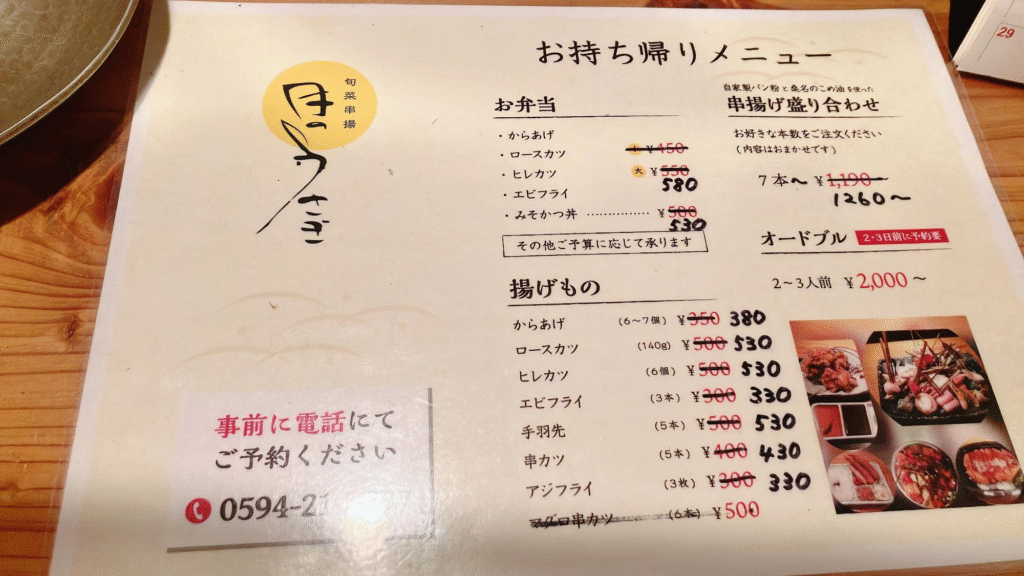 お持ち帰りメニュー
旬菜串揚
月のうさぎ
お弁当
・からあげ
・ロースカツ
・ヒレカツ
・エビフライ
¥450
大 ¥550
580
・みそかつ丼 …………… ¥500
530
その他ご予算に応じて承ります
揚げもの
からあげ (6〜7個) ¥350 380
ロースカツ (140g) ¥500 530
ヒレカツ (6個) ¥500 530
エビフライ (3本) ¥300 330
手羽先 (5本) ¥500 530
串カツ (5本) ¥400 430
アジフライ (3枚) ¥300 330
マグロ串カツ (6本) ¥500
自家製パン粉と桑名のこめ油を使った
串揚げ盛り合わせ
お好きな本数をご注文ください
(内容はおまかせです)
7本〜 ¥1,190〜
1260〜
オードブル 2・3日前に予約要
2〜3人前 ¥2,000〜
事前に電話にて
ご予約ください
0594-21
29